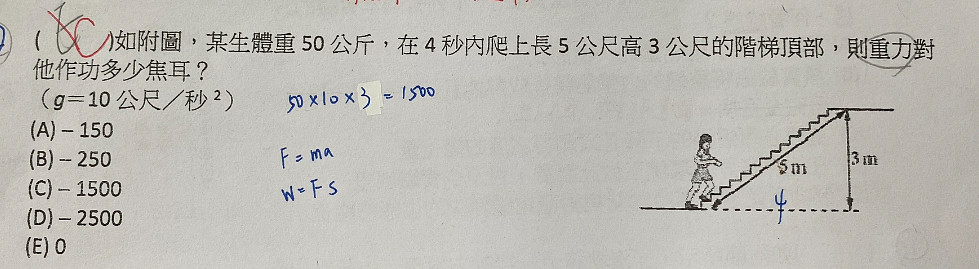 ( C )如附圖，某生體重 50 公斤，在 4 秒內爬上長 5 公尺高 3 公尺的階梯頂部，則重力對
他作功多少焦耳？
（g＝10 公尺／秒²）
50×10×3 = 1500
(A) – 150
(B) – 250
F = ma
(C) – 1500
W = FS
(D) – 2500
(E) 0
5 m
3 m
4